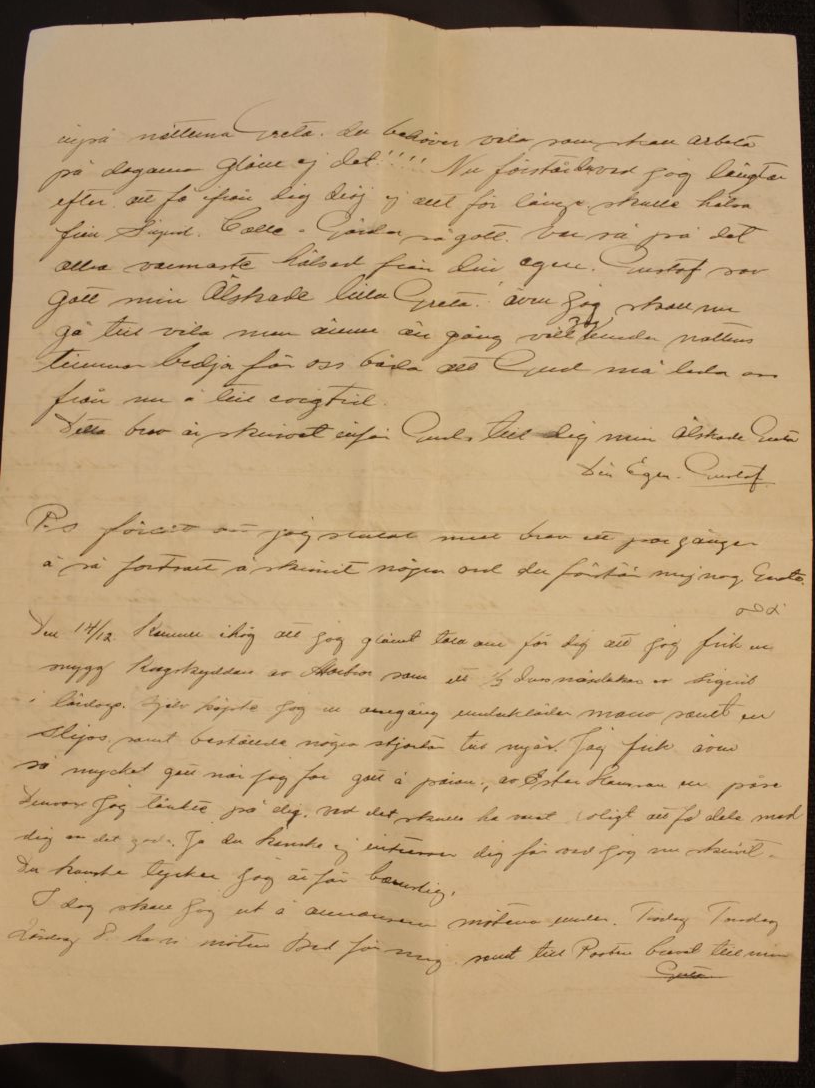 nätterna Greta. du behöver vila som skall arbeta
på dagarna glöm ej det!!!! Nu förstår du vad jag längtar
efter att få ifrån dig dröj ej allt för länge skulle hälsa
från Sigrid. Calle - Gärda så gott. var så på det
allra varmaste hälsad från din egen. Gustaf sov
gott min Älskade lilla Greta! även jag skall nu
gå till vila men ännu en gång vill jag under nattens
timmar bedja för oss båda att Gud må leda oss
från nu å till evigtid.
Detta brev är skrivet inför Gud till dig min Älskade Greta
Din Egen. Gustaf.
P.S förlåt att jag slutat mitt brev ett par gånger
å så fortsatt å skrivit några ord du förstår mig nog Greta.
Den 14/12 Kommer ihåg att jag glömt tala om för dig att jag fick en
mygg kragskyddare av som ett 1/2 Duss näsdukar av Sigrid
i lördags. själv köpte jag en omgång underkläder samt en
Slips, samt beställde några skjortor till nyår. Jag fick även
så mycket gott när jag for gott å päron, av Ester en påse
Druvor jag tänkte på dig. vad det skulle ha varit roligt att få dela med
dig av det goda. Ja du kanske ej dig för vad jag nu skrivit.
Du kanske tycker jag är för barnslig.
I dag skall jag ut å annonsera mötena under. Tisdag Torsdag
Lördag 8 ha vi möten Bed för mig. samt till Posten brevet till min
Greta